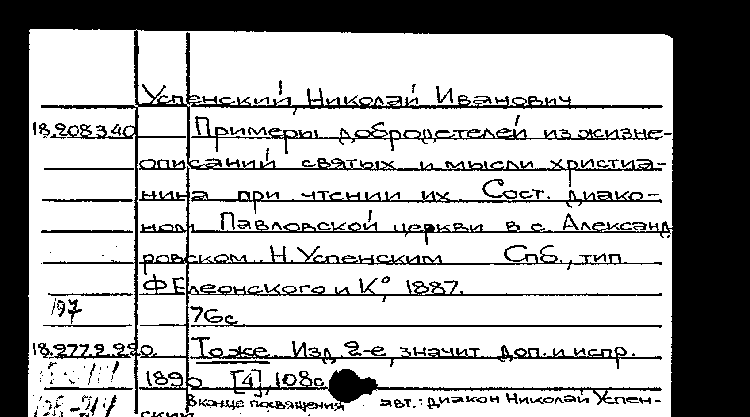 Успенский, Николай Иванович
18.208.3.40 Примеры добродетелей из жизне-
описаний святых и мысли христиа-
нина при чтении их Сост. диако-
ном Павловской церкви в с. Александ
ровском Н. Успенским Спб., тип.
Ф Елеонского и К°, 1887.
197 76с
18.277.2.220. То же Изд. 2-е, значит. доп. и испр.
1890 [4], 108с
В конце посвящения авт.: диакон Николай Успен-
ский